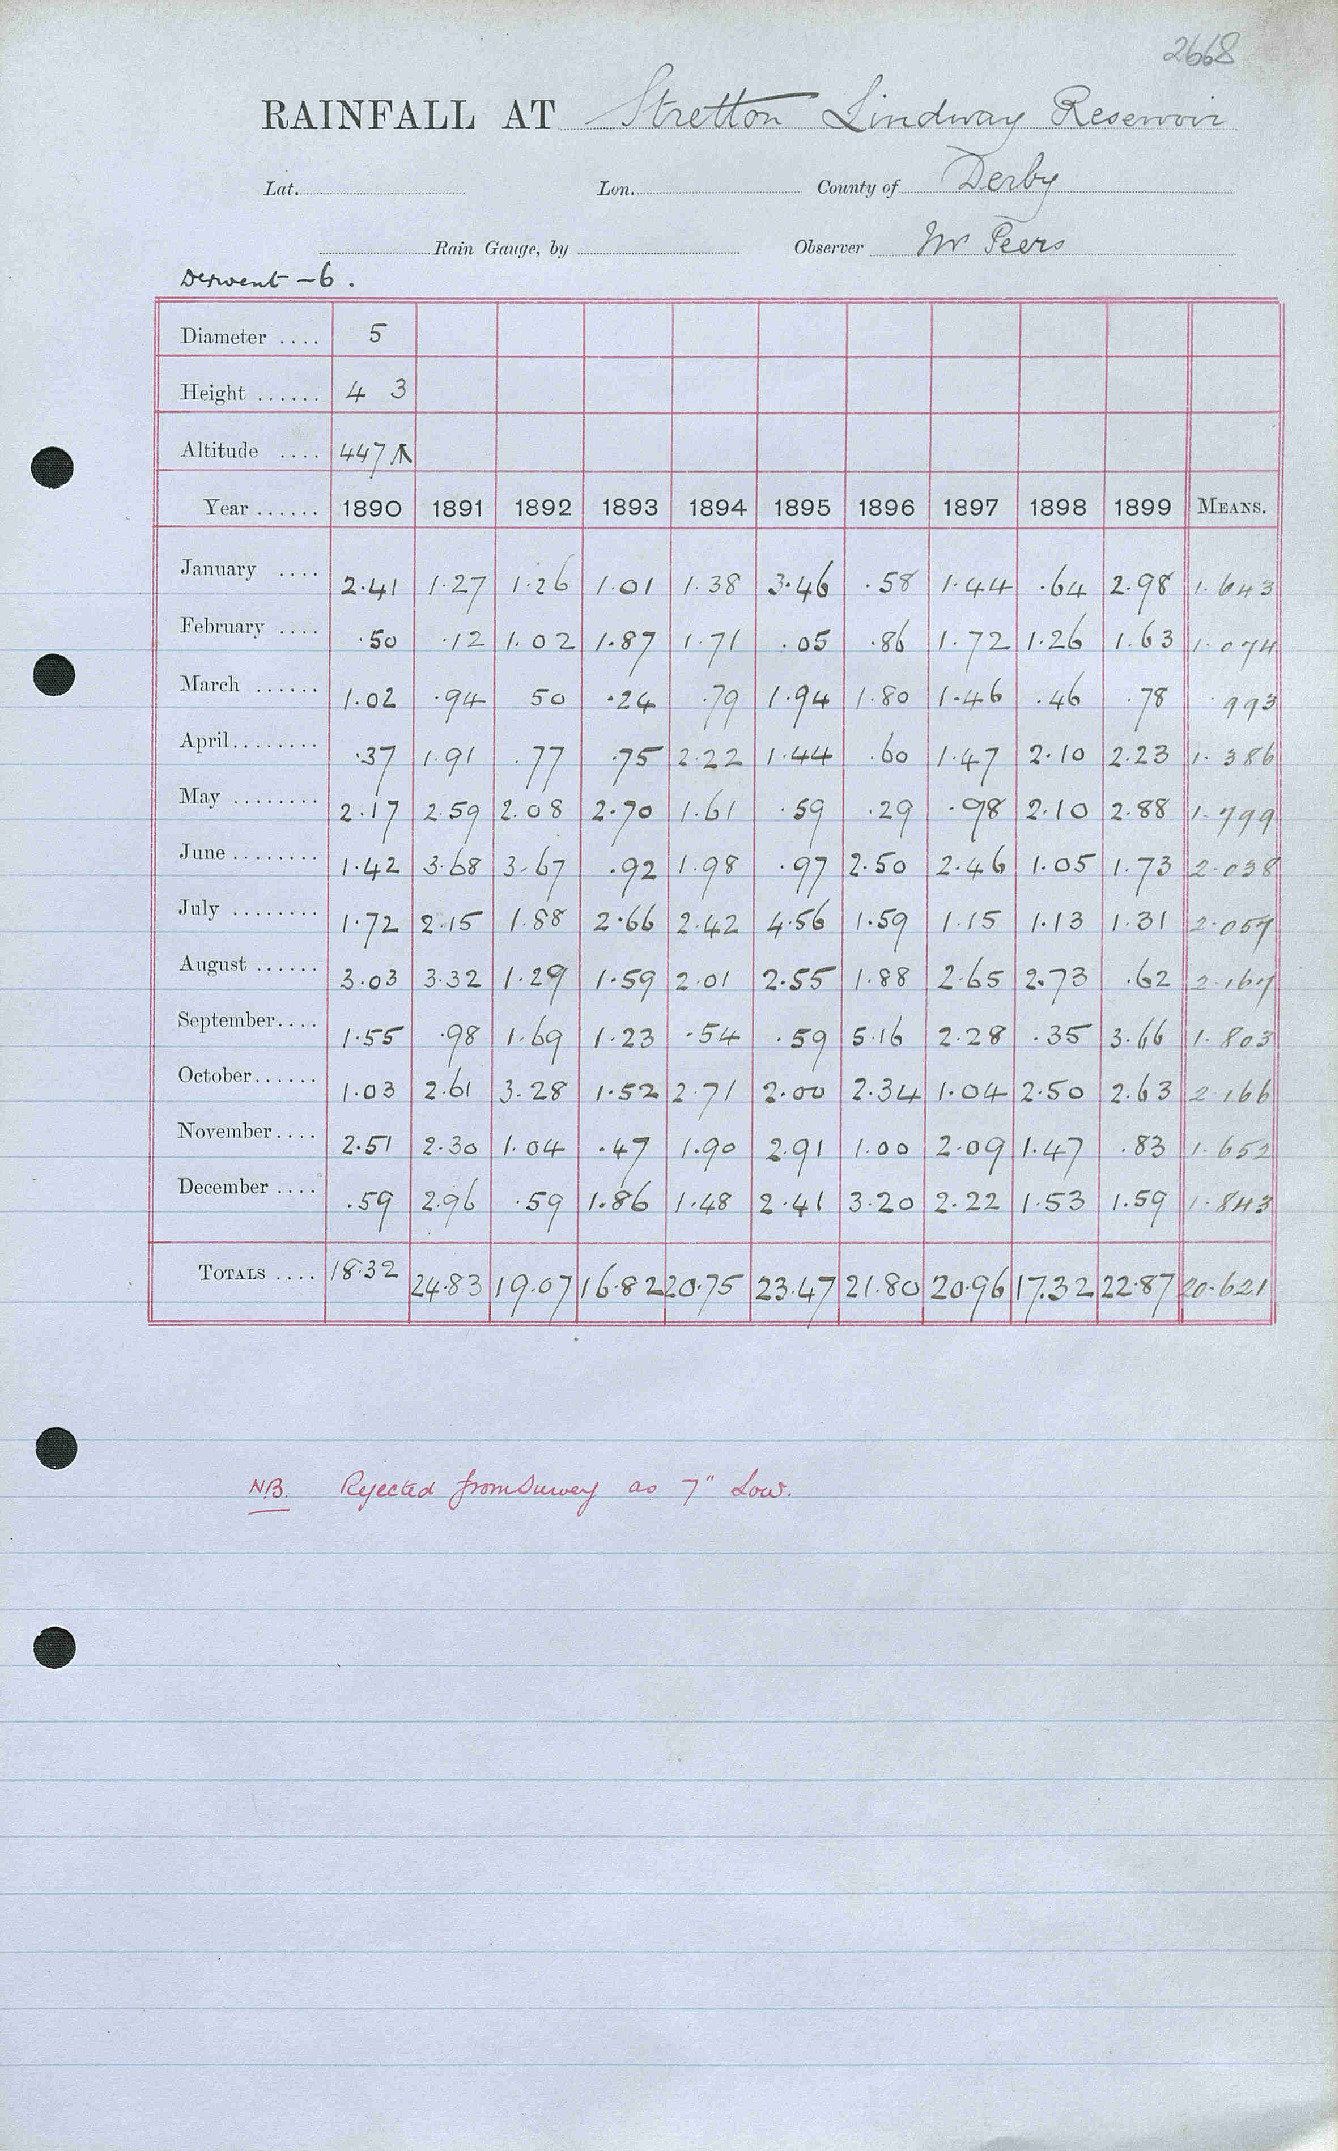 2668
RAINFALL AT Stretton Lindway Reservoir
Lat. Lon. County of Derby
Rain Gauge, by Observer Mr Peers
Derwent - 6.
Diameter .... 5
Height ...... 4 3
Altitude .... 447
Year ...... 1890 1891 1892 1893 1894 1895 1896 1897 1898 1899 MEANS.
January .... 2.41 1.27 1.26 1.01 1.38 3.46 .58 1.44 .64 2.98 1.643
February .... .50 .12 1.02 1.87 1.71 .05 .86 1.72 1.26 1.63 1.074
March ...... 1.02 .94 50 .24 .79 1.94 1.80 1.46 .46 .78 .993
April ........ .37 1.91 .77 .75 2.22 1.44 .60 1.47 2.10 2.23 1.386
May ........ 2.17 2.59 2.08 2.70 1.61 .59 .29 .98 2.10 2.88 1.799
June ........ 1.42 3.68 3.67 .92 1.98 .97 2.50 2.46 1.05 1.73 2.038
July ........ 1.72 2.15 1.88 2.66 2.42 4.56 1.59 1.15 1.13 1.31 2.057
August ...... 3.03 3.32 1.29 1.59 2.01 2.55 1.88 2.65 2.73 .62 2.167
September .... 1.55 .98 1.69 1.23 .54 .59 5.16 2.28 .35 3.66 1.803
October ...... 1.03 2.61 3.28 1.52 2.71 2.00 2.34 1.04 2.50 2.63 2.166
November .... 2.51 2.30 1.04 .47 1.90 2.91 1.00 2.09 1.47 .83 1.652
December .... .59 2.96 .59 1.86 1.48 2.41 3.20 2.22 1.53 1.59 1.843
TOTALS .... 18.32 24.83 19.07 16.82 20.75 23.47 21.80 20.96 17.32 22.87 20.621
NB. Rejected from Survey as 7" Low.